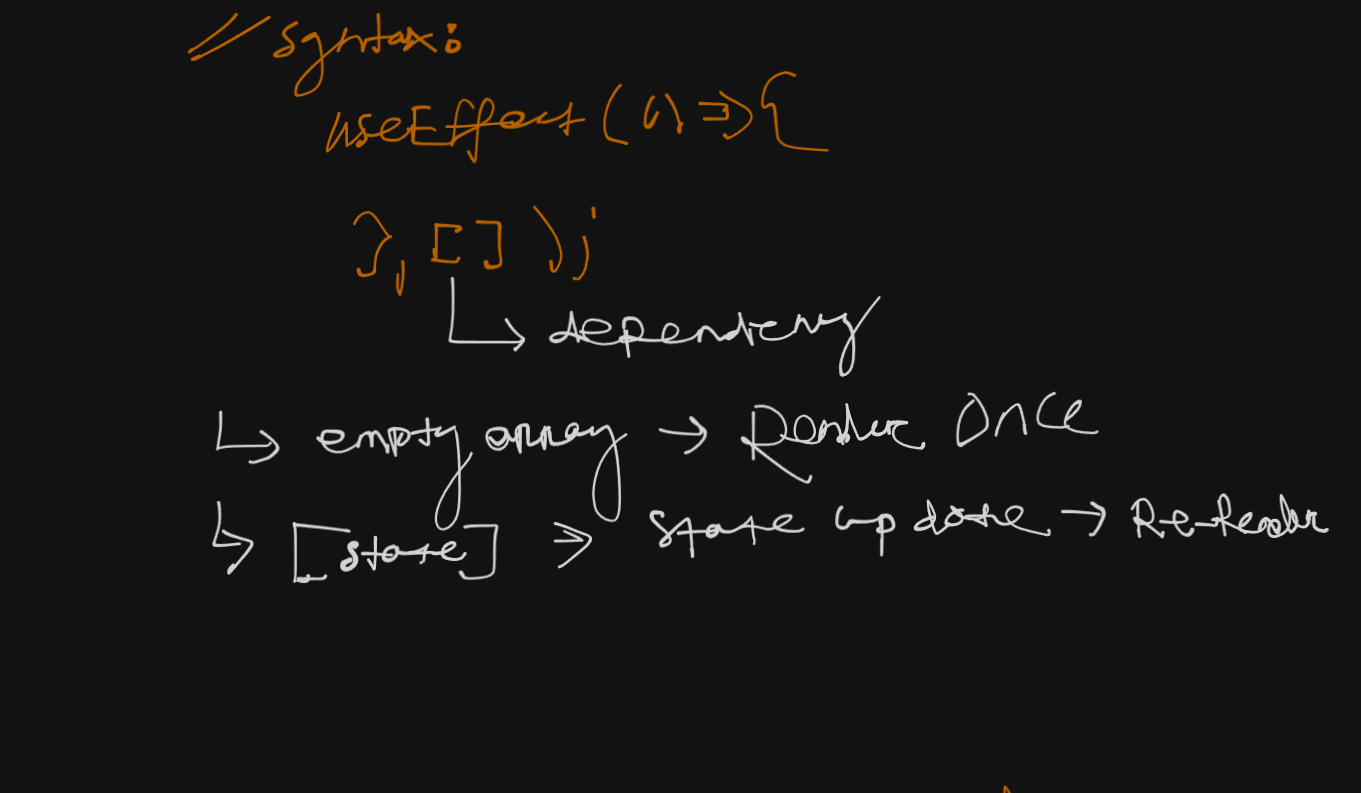 // syntax:
useEffect(() => {
}, [] );
↳ dependency
↳ empty array → Render Once
↳ [state] ⇒ state update → Re-Render